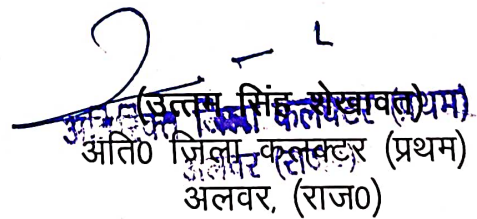 (उत्तम सिंह शेखावत)
अतिरिक्त जिला कलक्टर (प्रथम)
अति0 जिला कलक्टर (प्रथम)
अलवर (राज.)
अलवर, (राज0)